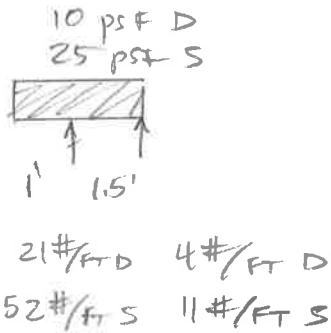 10 psf D
25 psf S
1' 1.5'
21#/FT D 4#/FT D
52#/FT S 11#/FT S